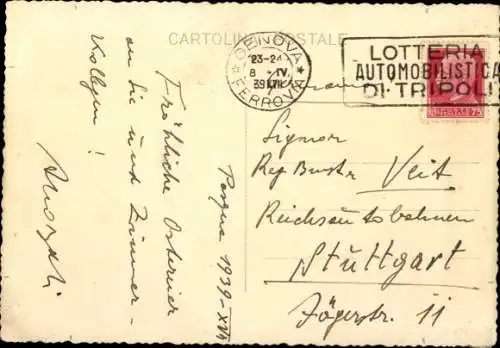 CARTOLINA POSTALE
GENOVA
23-24
8 · IV
39 XVII
FERROVIA
LOTTERIA
AUTOMOBILISTICA
DI·TRIPOLI
75
Signor
Reg Bmstr Veit
Reichsautobahnen
Stuttgart
Jägerstr. 11
Fröhliche Ostereier
an Sie und Zimmer-
Kollegen!
Pasqua 1939-XVII